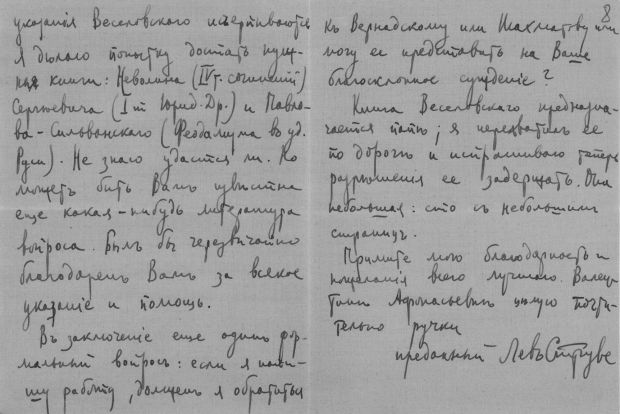 указанія Веселовского исчерпываются
Я дѣлаю попытку достать нуж-
ныя книги: Неволина (IV т. сочиненій)
Сергѣевича (I т. Юрид. Др.) и Павло-
ва-Сильванскаго (Феодализма въ уд.
Руси). Не знаю удастся ли. Но
можетъ быть Вамъ извѣстна
еще какая-нибудь литература
вопроса. Былъ бы черезвычайно
благодаренъ Вамъ за всякое
указаніе и помощь.
Въ заключеніе еще одинъ фор-
мальный вопросъ: если я напи-
шу работу, долженъ я обратиться
8
къ Вернадскому или Шахматову или
могу ее представить на Ваше
благосклонное сужденіе?
Книга Веселовского предназна-
чается папѣ; я перехватилъ ее
по дорогѣ и испрашиваю теперь
разрѣшенія ее задержать. Она
небольшая: сто съ небольшимъ
страницъ.
Примите мою благодарность и
пожеланія всего лучшаго. Вален-
тинѣ Афанасьевнѣ цѣлую почти-
тельно ручки
преданный Левъ Струве